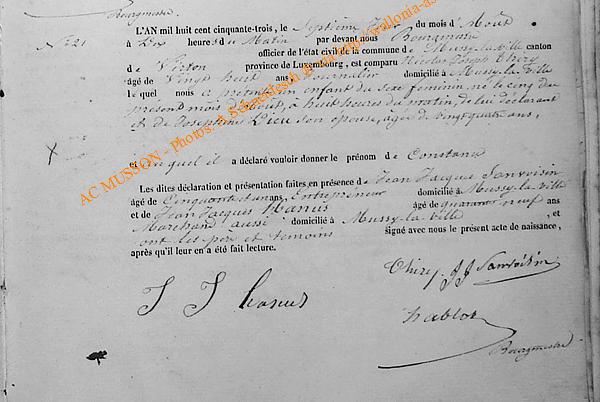 Bourgmestre
N° 21
L'AN mil huit cent cinquante-trois, le Septième jour du mois d'Août
à Dix heures du Matin par devant nous Bourgmestre
officier de l'état civil de la commune de Mussy-la-Ville canton
de Virton province de Luxembourg, est comparu Nicolas Joseph Thiry
âgé de Vingt huit ans, Journalier domicilié à Mussy-la-Ville
lequel nous a présenté un enfant du sexe féminin né le cinq du
présent mois d'Août, à huit heures du matin, de lui déclarant
et de Josephine Lieu son épouse, agée de vingt quatre ans,
et auquel il a déclaré vouloir donner le prénom de Constance
Les dites déclaration et présentation faites en présence de Jean Jacques Sanvoisin
âgé de Cinquante et un ans, Entrepreneur domicilié à Mussy-la-Ville
et de Jean Jacques Hanus âgé de quarante neuf ans
Marchand aussi domicilié à Mussy-la-Ville, et
ont les père et témoins signé avec nous le présent acte de naissance,
après qu'il leur en a été fait lecture.
Thiry JJ Sanvoisin
J J hanus
hablot
Bourgmestre
AC MUSSON - Photos: A Schaedgen